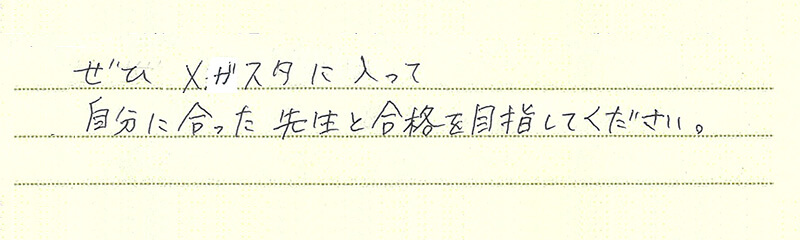 ぜひ メガスタに入って
自分に合った先生と合格を目指してください。